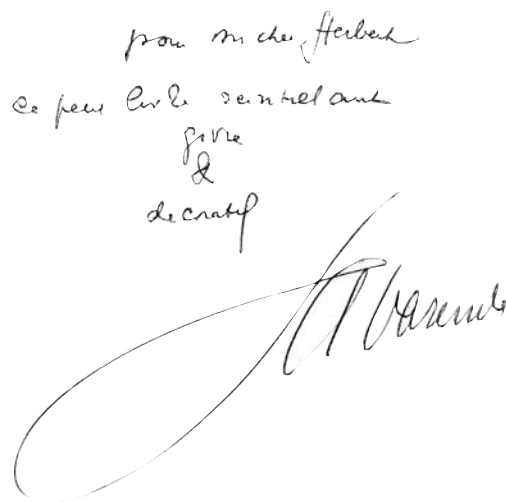 pour mon cher Herbert
ce petit livre scintillant
givre
&
decoratif
La Varende